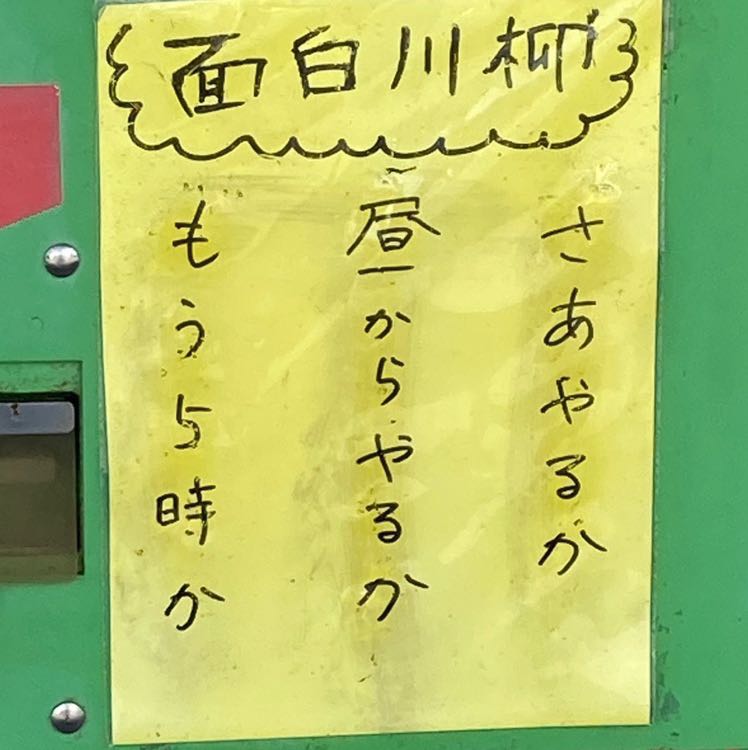 面白川柳
さあやるか
昼からやるか
もう5時か